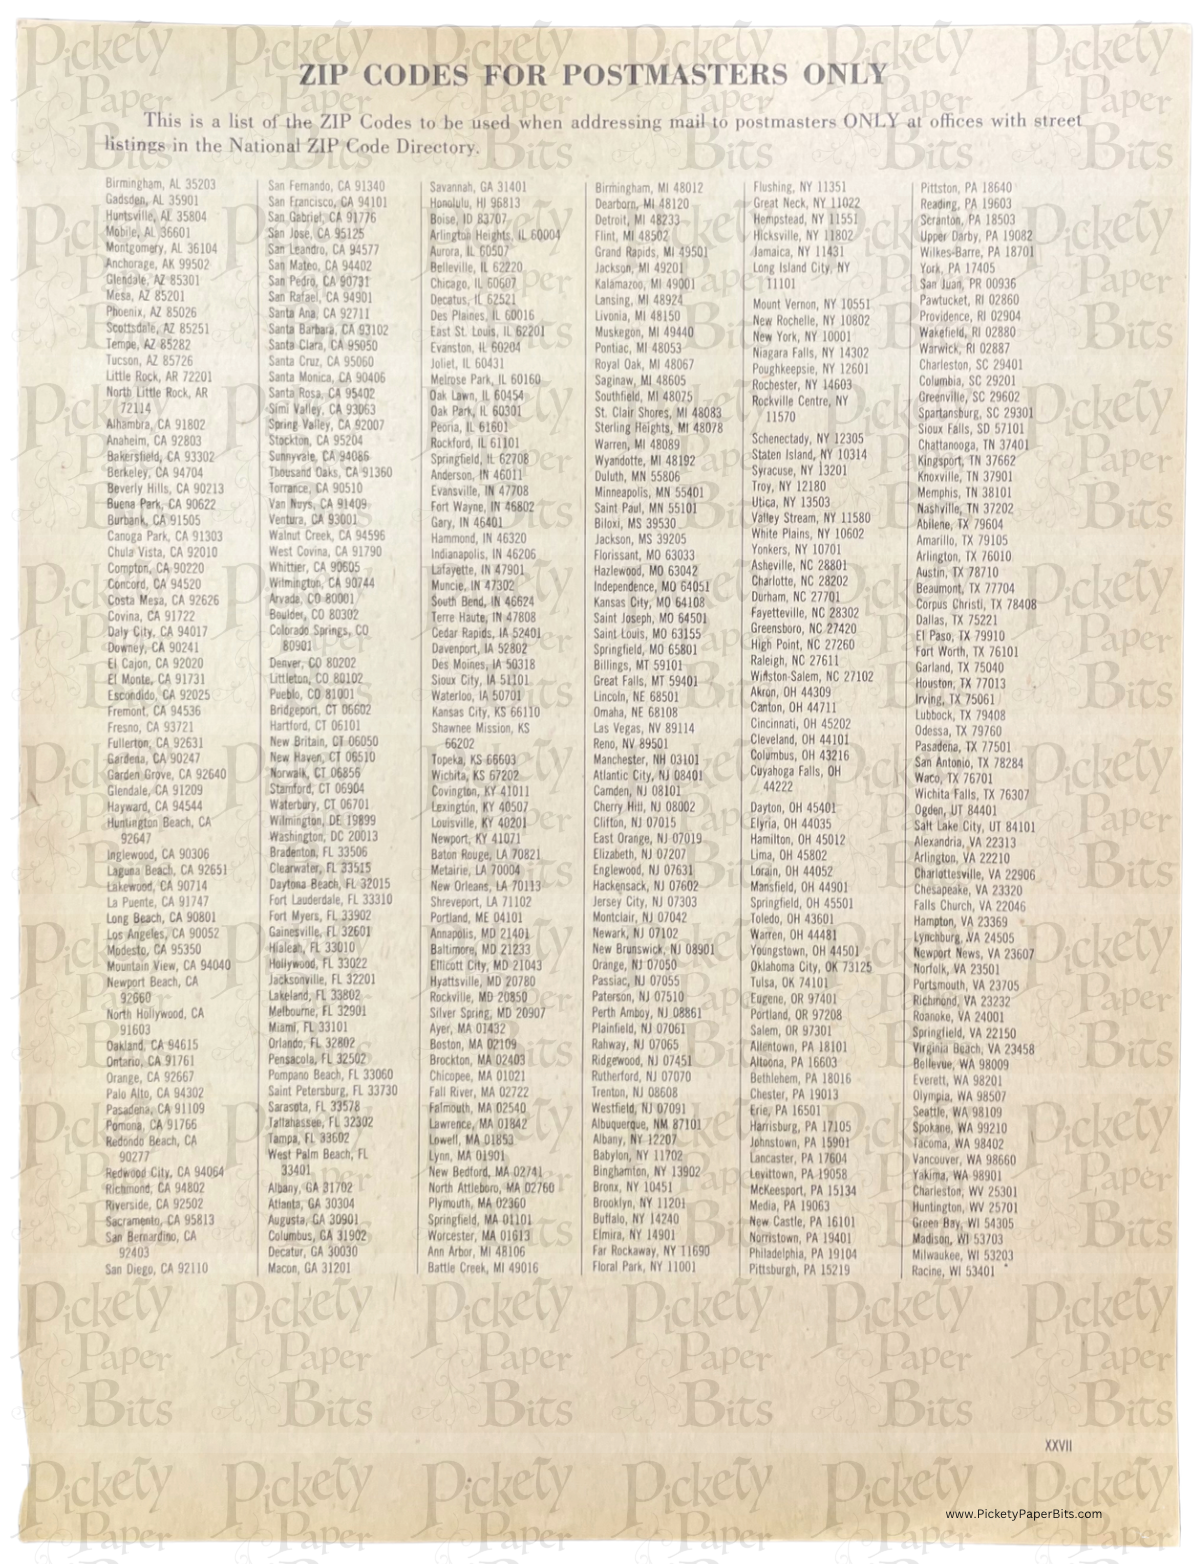 ZIP CODES FOR POSTMASTERS ONLY
This is a list of the ZIP Codes to be used when addressing mail to postmasters ONLY at offices with street
listings in the National ZIP Code Directory.
Birmingham, AL 35203
Gadsden, AL 35901
Huntsville, AL 35804
Mobile, AL 36601
Montgomery, AL 36104
Anchorage, AK 99502
Glendale, AZ 85301
Mesa, AZ 85201
Phoenix, AZ 85026
Scottsdale, AZ 85251
Tempe, AZ 85282
Tucson, AZ 85726
Little Rock, AR 72201
North Little Rock, AR
72114
Alhambra, CA 91802
Anaheim, CA 92803
Bakersfield, CA 93302
Berkeley, CA 94704
Beverly Hills, CA 90213
Buena Park, CA 90622
Burbank, CA 91505
Canoga Park, CA 91303
Chula Vista, CA 92010
Compton, CA 90220
Concord, CA 94520
Costa Mesa, CA 92626
Covina, CA 91722
Daly City, CA 94017
Downey, CA 90241
El Cajon, CA 92020
El Monte, CA 91731
Escondido, CA 92025
Fremont, CA 94536
Fresno, CA 93721
Fullerton, CA 92631
Gardena, CA 90247
Garden Grove, CA 92640
Glendale, CA 91209
Hayward, CA 94544
Huntington Beach, CA
92647
Inglewood, CA 90306
Laguna Beach, CA 92651
Lakewood, CA 90714
La Puente, CA 91747
Long Beach, CA 90801
Los Angeles, CA 90052
Modesto, CA 95350
Mountain View, CA 94040
Newport Beach, CA
92660
North Hollywood, CA
91603
Oakland, CA 94615
Ontario, CA 91761
Orange, CA 92667
Palo Alto, CA 94302
Pasadena, CA 91109
Pomona, CA 91766
Redondo Beach, CA
90277
Redwood City, CA 94064
Richmond, CA 94802
Riverside, CA 92502
Sacramento, CA 95813
San Bernardino, CA
92403
San Diego, CA 92110
San Fernando, CA 91340
San Francisco, CA 94101
San Gabriel, CA 91776
San Jose, CA 95125
San Leandro, CA 94577
San Mateo, CA 94402
San Pedro, CA 90731
San Rafael, CA 94901
Santa Ana, CA 92711
Santa Barbara, CA 93102
Santa Clara, CA 95050
Santa Cruz, CA 95060
Santa Monica, CA 90406
Santa Rosa, CA 95402
Simi Valley, CA 93063
Spring Valley, CA 92007
Stockton, CA 95204
Sunnyvale, CA 94086
Thousand Oaks, CA 91360
Torrance, CA 90510
Van Nuys, CA 91409
Ventura, CA 93001
Walnut Creek, CA 94596
West Covina, CA 91790
Whittier, CA 90605
Wilmington, CA 90744
Arvada, CO 80001
Boulder, CO 80302
Colorado Springs, CO
80901
Denver, CO 80202
Littleton, CO 80102
Pueblo, CO 81001
Bridgeport, CT 06602
Hartford, CT 06101
New Britain, CT 06050
New Haven, CT 06510
Norwalk, CT 06856
Stamford, CT 06904
Waterbury, CT 06701
Wilmington, DE 19899
Washington, DC 20013
Bradenton, FL 33506
Clearwater, FL 33515
Daytona Beach, FL 32015
Fort Lauderdale, FL 33310
Fort Myers, FL 33902
Gainesville, FL 32601
Hialeah, FL 33010
Hollywood, FL 33022
Jacksonville, FL 32201
Lakeland, FL 33802
Melbourne, FL 32901
Miami, FL 33101
Orlando, FL 32802
Pensacola, FL 32502
Pompano Beach, FL 33060
Saint Petersburg, FL 33730
Sarasota, FL 33578
Tallahassee, FL 32302
Tampa, FL 33602
West Palm Beach, FL
33401
Albany, GA 31702
Atlanta, GA 30304
Augusta, GA 30901
Columbus, GA 31902
Decatur, GA 30030
Macon, GA 31201
Savannah, GA 31401
Honolulu, HI 96813
Boise, ID 83707
Arlington Heights, IL 60004
Aurora, IL 60507
Belleville, IL 62220
Chicago, IL 60607
Decatus, IL 62521
Des Plaines, IL 60016
East St. Louis, IL 62201
Evanston, IL 60204
Joliet, IL 60431
Melrose Park, IL 60160
Oak Lawn, IL 60454
Oak Park, IL 60301
Peoria, IL 61601
Rockford, IL 61101
Springfield, IL 62708
Anderson, IN 46011
Evansville, IN 47708
Fort Wayne, IN 46802
Gary, IN 46401
Hammond, IN 46320
Indianapolis, IN 46206
Lafayette, IN 47901
Muncie, IN 47302
South Bend, IN 46624
Terre Haute, IN 47808
Cedar Rapids, IA 52401
Davenport, IA 52802
Des Moines, IA 50318
Sioux City, IA 51101
Waterloo, IA 50701
Kansas City, KS 66110
Shawnee Mission, KS
66202
Topeka, KS 66603
Wichita, KS 67202
Covington, KY 41011
Lexington, KY 40507
Louisville, KY 40201
Newport, KY 41071
Baton Rouge, LA 70821
Metairie, LA 70004
New Orleans, LA 70113
Shreveport, LA 71102
Portland, ME 04101
Annapolis, MD 21401
Baltimore, MD 21233
Ellicott City, MD 21043
Hyattsville, MD 20780
Rockville, MD 20850
Silver Spring, MD 20907
Ayer, MA 01432
Boston, MA 02109
Brockton, MA 02403
Chicopee, MA 01021
Fall River, MA 02722
Falmouth, MA 02540
Lawrence, MA 01842
Lowell, MA 01853
Lynn, MA 01901
New Bedford, MA 02741
North Attleboro, MA 02760
Plymouth, MA 02360
Springfield, MA 01101
Worcester, MA 01613
Ann Arbor, MI 48106
Battle Creek, MI 49016
Birmingham, MI 48012
Dearborn, MI 48120
Detroit, MI 48233
Flint, MI 48502
Grand Rapids, MI 49501
Jackson, MI 49201
Kalamazoo, MI 49001
Lansing, MI 48924
Livonia, MI 48150
Muskegon, MI 49440
Pontiac, MI 48053
Royal Oak, MI 48067
Saginaw, MI 48605
Southfield, MI 48075
St. Clair Shores, MI 48083
Sterling Heights, MI 48078
Warren, MI 48089
Wyandotte, MI 48192
Duluth, MN 55806
Minneapolis, MN 55401
Saint Paul, MN 55101
Biloxi, MS 39530
Jackson, MS 39205
Florissant, MO 63033
Hazlewood, MO 63042
Independence, MO 64051
Kansas City, MO 64108
Saint Joseph, MO 64501
Saint Louis, MO 63155
Springfield, MO 65801
Billings, MT 59101
Great Falls, MT 59401
Lincoln, NE 68501
Omaha, NE 68108
Las Vegas, NV 89114
Reno, NV 89501
Manchester, NH 03101
Atlantic City, NJ 08401
Camden, NJ 08101
Cherry Hill, NJ 08002
Clifton, NJ 07015
East Orange, NJ 07019
Elizabeth, NJ 07207
Englewood, NJ 07631
Hackensack, NJ 07602
Jersey City, NJ 07303
Montclair, NJ 07042
Newark, NJ 07102
New Brunswick, NJ 08901
Orange, NJ 07050
Passiac, NJ 07055
Paterson, NJ 07510
Perth Amboy, NJ 08861
Plainfield, NJ 07061
Rahway, NJ 07065
Ridgewood, NJ 07451
Rutherford, NJ 07070
Trenton, NJ 08608
Westfield, NJ 07091
Albuquerque, NM 87101
Albany, NY 12207
Babylon, NY 11702
Binghamton, NY 13902
Bronx, NY 10451
Brooklyn, NY 11201
Buffalo, NY 14240
Elmira, NY 14901
Far Rockaway, NY 11690
Floral Park, NY 11001
Flushing, NY 11351
Great Neck, NY 11022
Hempstead, NY 11551
Hicksville, NY 11802
Jamaica, NY 11431
Long Island City, NY
11101
Mount Vernon, NY 10551
New Rochelle, NY 10802
New York, NY 10001
Niagara Falls, NY 14302
Poughkeepsie, NY 12601
Rochester, NY 14603
Rockville Centre, NY
11570
Schenectady, NY 12305
Staten Island, NY 10314
Syracuse, NY 13201
Troy, NY 12180
Utica, NY 13503
Valley Stream, NY 11580
White Plains, NY 10602
Yonkers, NY 10701
Asheville, NC 28801
Charlotte, NC 28202
Durham, NC 27701
Fayetteville, NC 28302
Greensboro, NC 27420
High Point, NC 27260
Raleigh, NC 27611
Winston-Salem, NC 27102
Akron, OH 44309
Canton, OH 44711
Cincinnati, OH 45202
Cleveland, OH 44101
Columbus, OH 43216
Cuyahoga Falls, OH
44222
Dayton, OH 45401
Elyria, OH 44035
Hamilton, OH 45012
Lima, OH 45802
Lorain, OH 44052
Mansfield, OH 44901
Springfield, OH 45501
Toledo, OH 43601
Warren, OH 44481
Youngstown, OH 44501
Oklahoma City, OK 73125
Tulsa, OK 74101
Eugene, OR 97401
Portland, OR 97208
Salem, OR 97301
Allentown, PA 18101
Altoona, PA 16603
Bethlehem, PA 18016
Chester, PA 19013
Erie, PA 16501
Harrisburg, PA 17105
Johnstown, PA 15901
Lancaster, PA 17604
Levittown, PA 19058
McKeesport, PA 15134
Media, PA 19063
New Castle, PA 16101
Norristown, PA 19401
Philadelphia, PA 19104
Pittsburgh, PA 15219
Pittston, PA 18640
Reading, PA 19603
Scranton, PA 18503
Upper Darby, PA 19082
Wilkes-Barre, PA 18701
York, PA 17405
San Juan, PR 00936
Pawtucket, RI 02860
Providence, RI 02904
Wakefield, RI 02880
Warwick, RI 02887
Charleston, SC 29401
Columbia, SC 29201
Greenville, SC 29602
Spartansburg, SC 29301
Sioux Falls, SD 57101
Chattanooga, TN 37401
Kingsport, TN 37662
Knoxville, TN 37901
Memphis, TN 38101
Nashville, TN 37202
Abilene, TX 79604
Amarillo, TX 79105
Arlington, TX 76010
Austin, TX 78710
Beaumont, TX 77704
Corpus Christi, TX 78408
Dallas, TX 75221
El Paso, TX 79910
Fort Worth, TX 76101
Garland, TX 75040
Houston, TX 77013
Irving, TX 75061
Lubbock, TX 79408
Odessa, TX 79760
Pasadena, TX 77501
San Antonio, TX 78284
Waco, TX 76701
Wichita Falls, TX 76307
Ogden, UT 84401
Salt Lake City, UT 84101
Alexandria, VA 22313
Arlington, VA 22210
Charlottesville, VA 22906
Chesapeake, VA 23320
Falls Church, VA 22046
Hampton, VA 23369
Lynchburg, VA 24505
Newport News, VA 23607
Norfolk, VA 23501
Portsmouth, VA 23705
Richmond, VA 23232
Roanoke, VA 24001
Springfield, VA 22150
Virginia Beach, VA 23458
Bellevue, WA 98009
Everett, WA 98201
Olympia, WA 98507
Seattle, WA 98109
Spokane, WA 99210
Tacoma, WA 98402
Vancouver, WA 98660
Yakima, WA 98901
Charleston, WV 25301
Huntington, WV 25701
Green Bay, WI 54305
Madison, WI 53703
Milwaukee, WI 53203
Racine, WI 53401
XXVII
www.PicketyPaperBits.com
Pickety
Paper
Bits